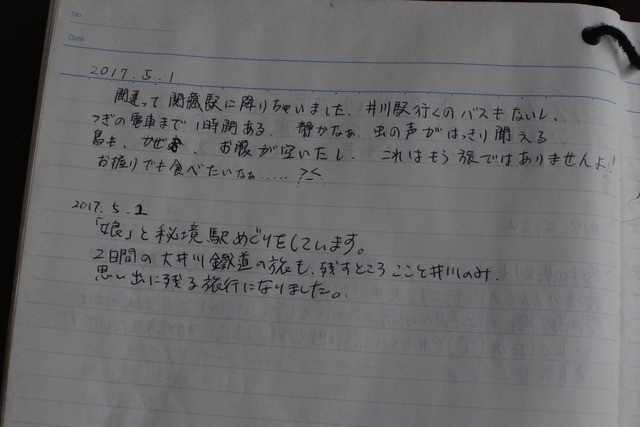 No.
Date
2017.5.1
間違って閑蔵駅に降りちゃいました、井川駅行くのバスもないし、
つぎの電車まで1時間ある。静かなぁ、虫の声がはっきり聞える
鳥も、かぜも、お腹が空いたし、これはもう旅ではありませんよ!
お握りでも食べたいなぁ..... ><
2017.5.1
「娘」と秘境駅めぐりをしています。
2日間の大井川鐵道の旅も、残すところここと井川のみ.
思い出に残る旅行になりました。